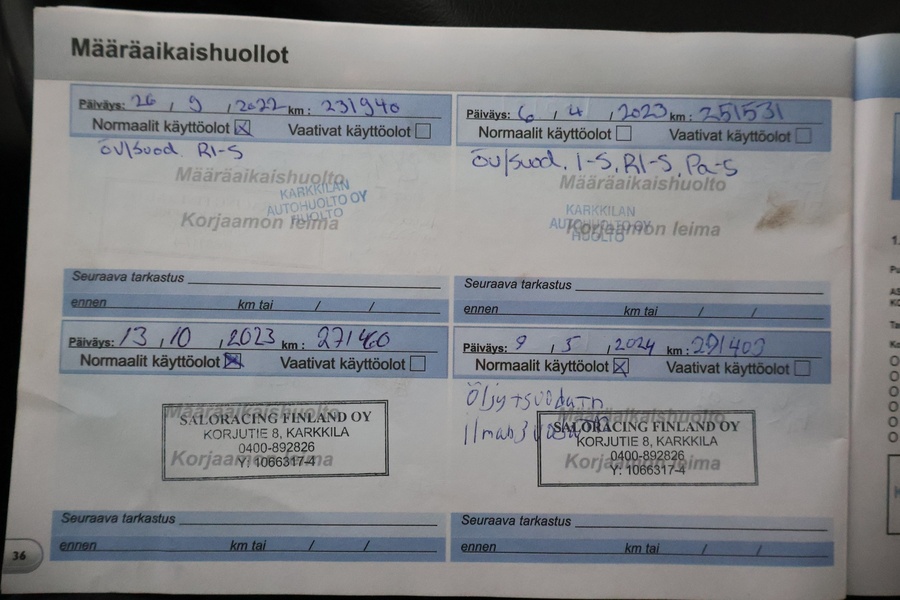 Määräaikaishuollot
Päiväys: 26 , 9 , 2022 km : 231940
Normaalit käyttöolot ☒ Vaativat käyttöolot ☐
öv/suod. RI-S
Määräaikaishuolto
KARKKILAN
AUTOHUOLTO OY
HUOLTO
Korjaamon leima
Seuraava tarkastus
ennen km tai / /
Päiväys: 6 , 4 , 2023 km : 251531
Normaalit käyttöolot ☐ Vaativat käyttöolot ☐
öv/suod. I-S, RI-S, Pa-S
Määräaikaishuolto
KARKKILAN
AUTOHUOLTO OY
HUOLTO
Korjaamon leima
Seuraava tarkastus
ennen km tai / /
Päiväys: 13 , 10 , 2023 km : 271460
Normaalit käyttöolot ☒ Vaativat käyttöolot ☐
Määräaikaishuolto
SALORACING FINLAND OY
KORJUTIE 8, KARKKILA
0400-892826
Y: 1066317-4
Korjaamon leima
Seuraava tarkastus
ennen km tai / /
Päiväys: 9 , 5 , 2024 km : 291403
Normaalit käyttöolot ☒ Vaativat käyttöolot ☐
Öljy+suodatin
Määräaikaishuolto
SALORACING FINLAND OY
KORJUTIE 8, KARKKILA
0400-892826
Y: 1066317-4
Korjaamon leima
Seuraava tarkastus
ennen km tai / /
36
1.